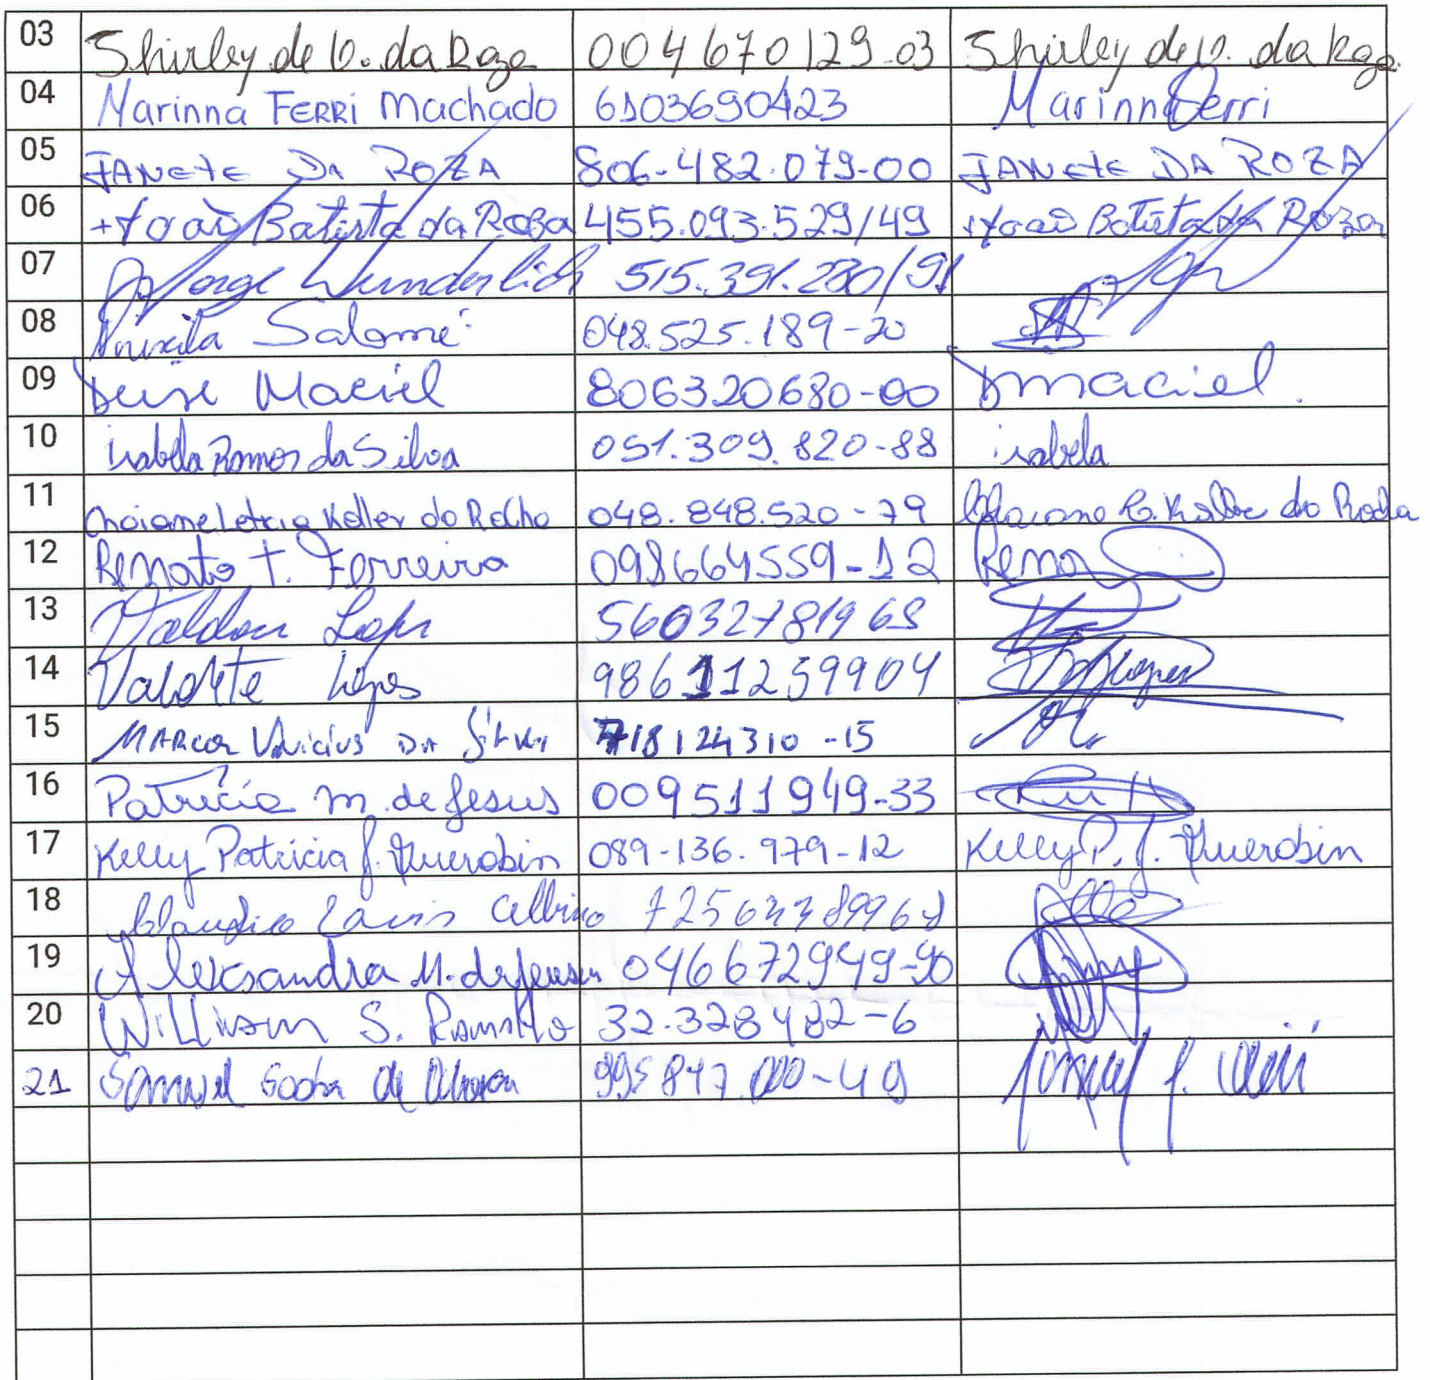 03 Shirley de O. da Roza 004670129-03 Shirley de O. da Roza
04 Marinna FERRI Machado 6103690423 Marinna Ferri
05 JANETE DA ROZA 806-482.079-00 JANETE DA ROZA
06 +João Batista da Roza 455.093.529/49 +João Batista da Roza
07 Jorge Wunderlich 515.391.280/91
08 Salomé 048.525.189-20
09 Deise Maciel 806320680-00 DMaciel.
10 isabela Ramos da Silva 051.309.820-88 isabela
11 Keller da Rocha 048.848.520-79 da Rocha
12 Renato T. Ferreira 098664559-12 Rena
13 Lopes 56032781968
14 Valdete Lopes 986111259904
15 MARCOS Vinicius DA SILVA 718124310-15
16 Patrícia M. de Jesus 009511949-33
17 Kelly Patricia J. Querobin 089-136.979-12 Kelly P. J. Querobin
18 Albino
19 Aleksandra M. 046672949-90
20 William S. Ramalho 32.328482-6
21 Samuel 995847.000-49